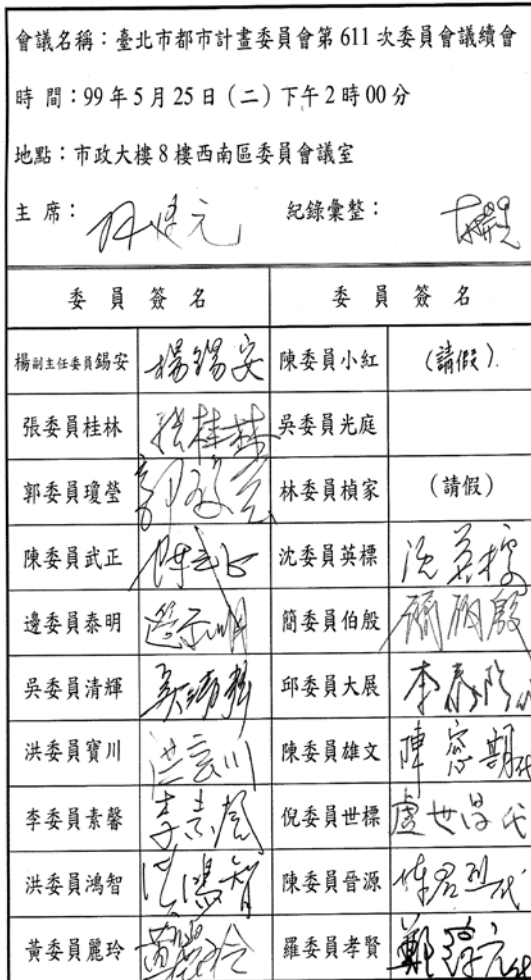 會議名稱：臺北市都市計畫委員會第 611 次委員會議續會
時 間：99 年 5 月 25 日（二）下午 2 時 00 分
地點：市政大樓 8 樓西南區委員會議室
主 席： 紀錄彙整：
委 員 簽 名 委 員 簽 名
楊副主任委員錫安 楊錫安 陳委員小紅 (請假)
張委員桂林 張桂林 吳委員光庭
郭委員瓊瑩 林委員楨家 (請假)
陳委員武正 沈委員英標 沈英標
邊委員泰明 邊泰明 簡委員伯殷 簡伯殷
吳委員清輝 吳清輝 邱委員大展
洪委員寶川 陳委員雄文
李委員素馨 倪委員世標
洪委員鴻智 洪鴻智 陳委員晉源
黃委員麗玲 黃麗玲 羅委員孝賢